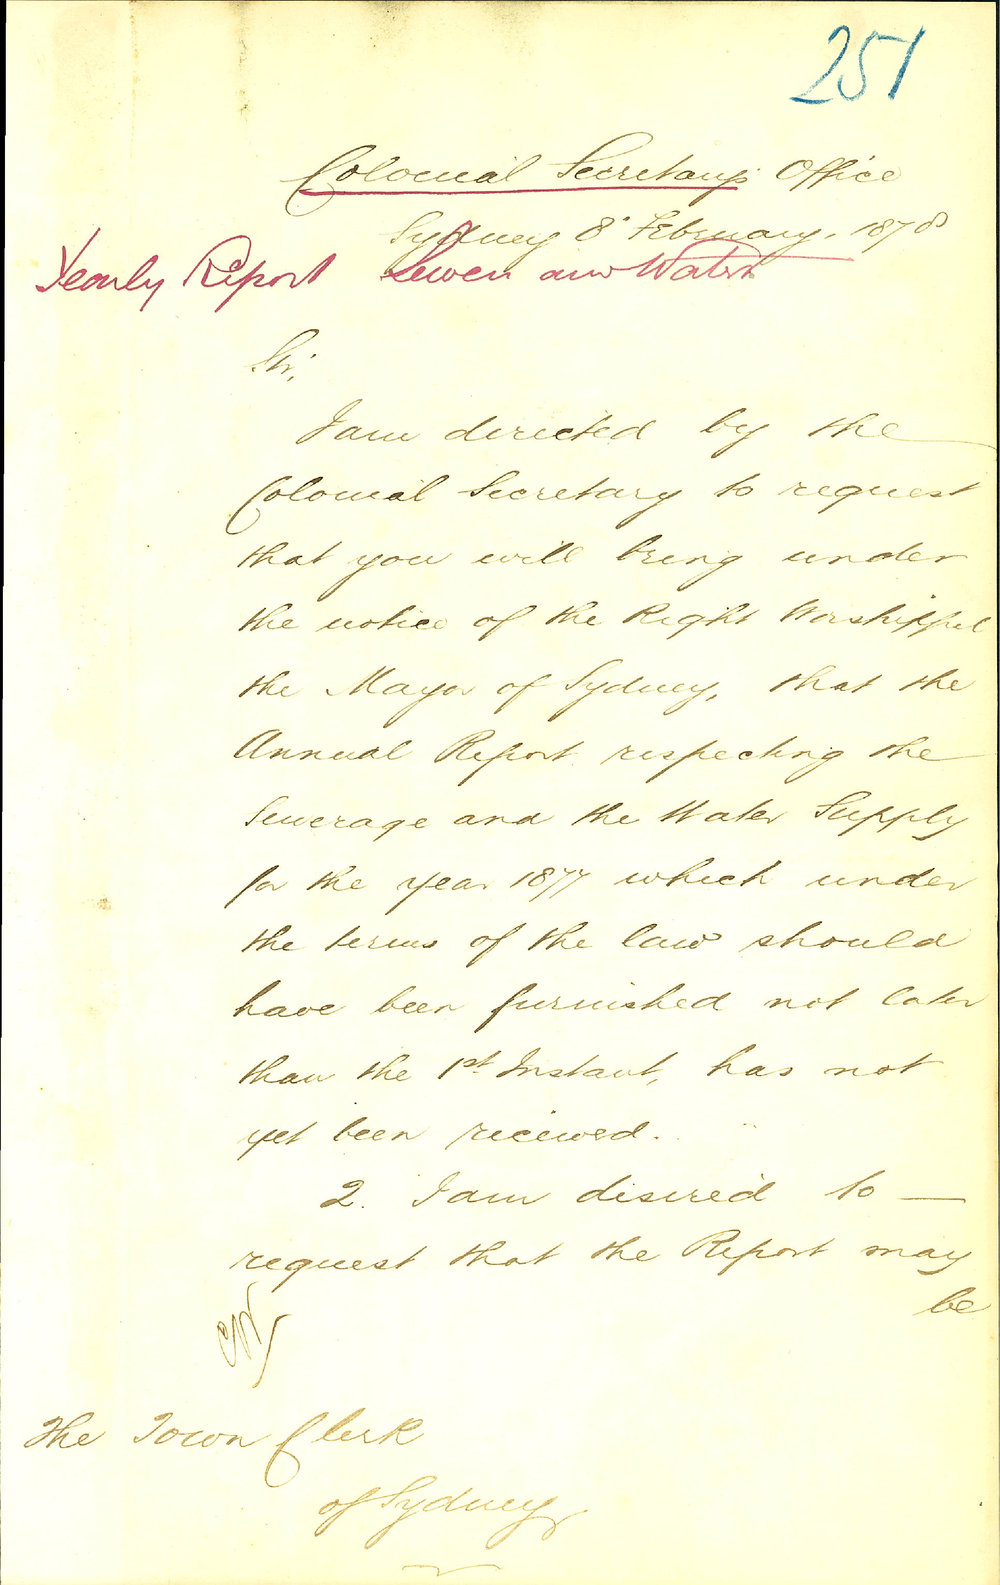 251
Colonial Secretary's Office
Sydney 8 February, 1878
Yearly Report Sewer and Water
Sir,
I am directed by the
Colonial Secretary to request
that you will bring under
the notice of the Right Worshipful
the Mayor of Sydney, that the
Annual Report respecting the
Sewerage and the Water Supply
for the year 1877 which under
the terms of the law should
have been furnished not later
than the 1st Instant, has not
yet been received.
2. I am desired to —
request that the Report may
be
The Town Clerk
of Sydney